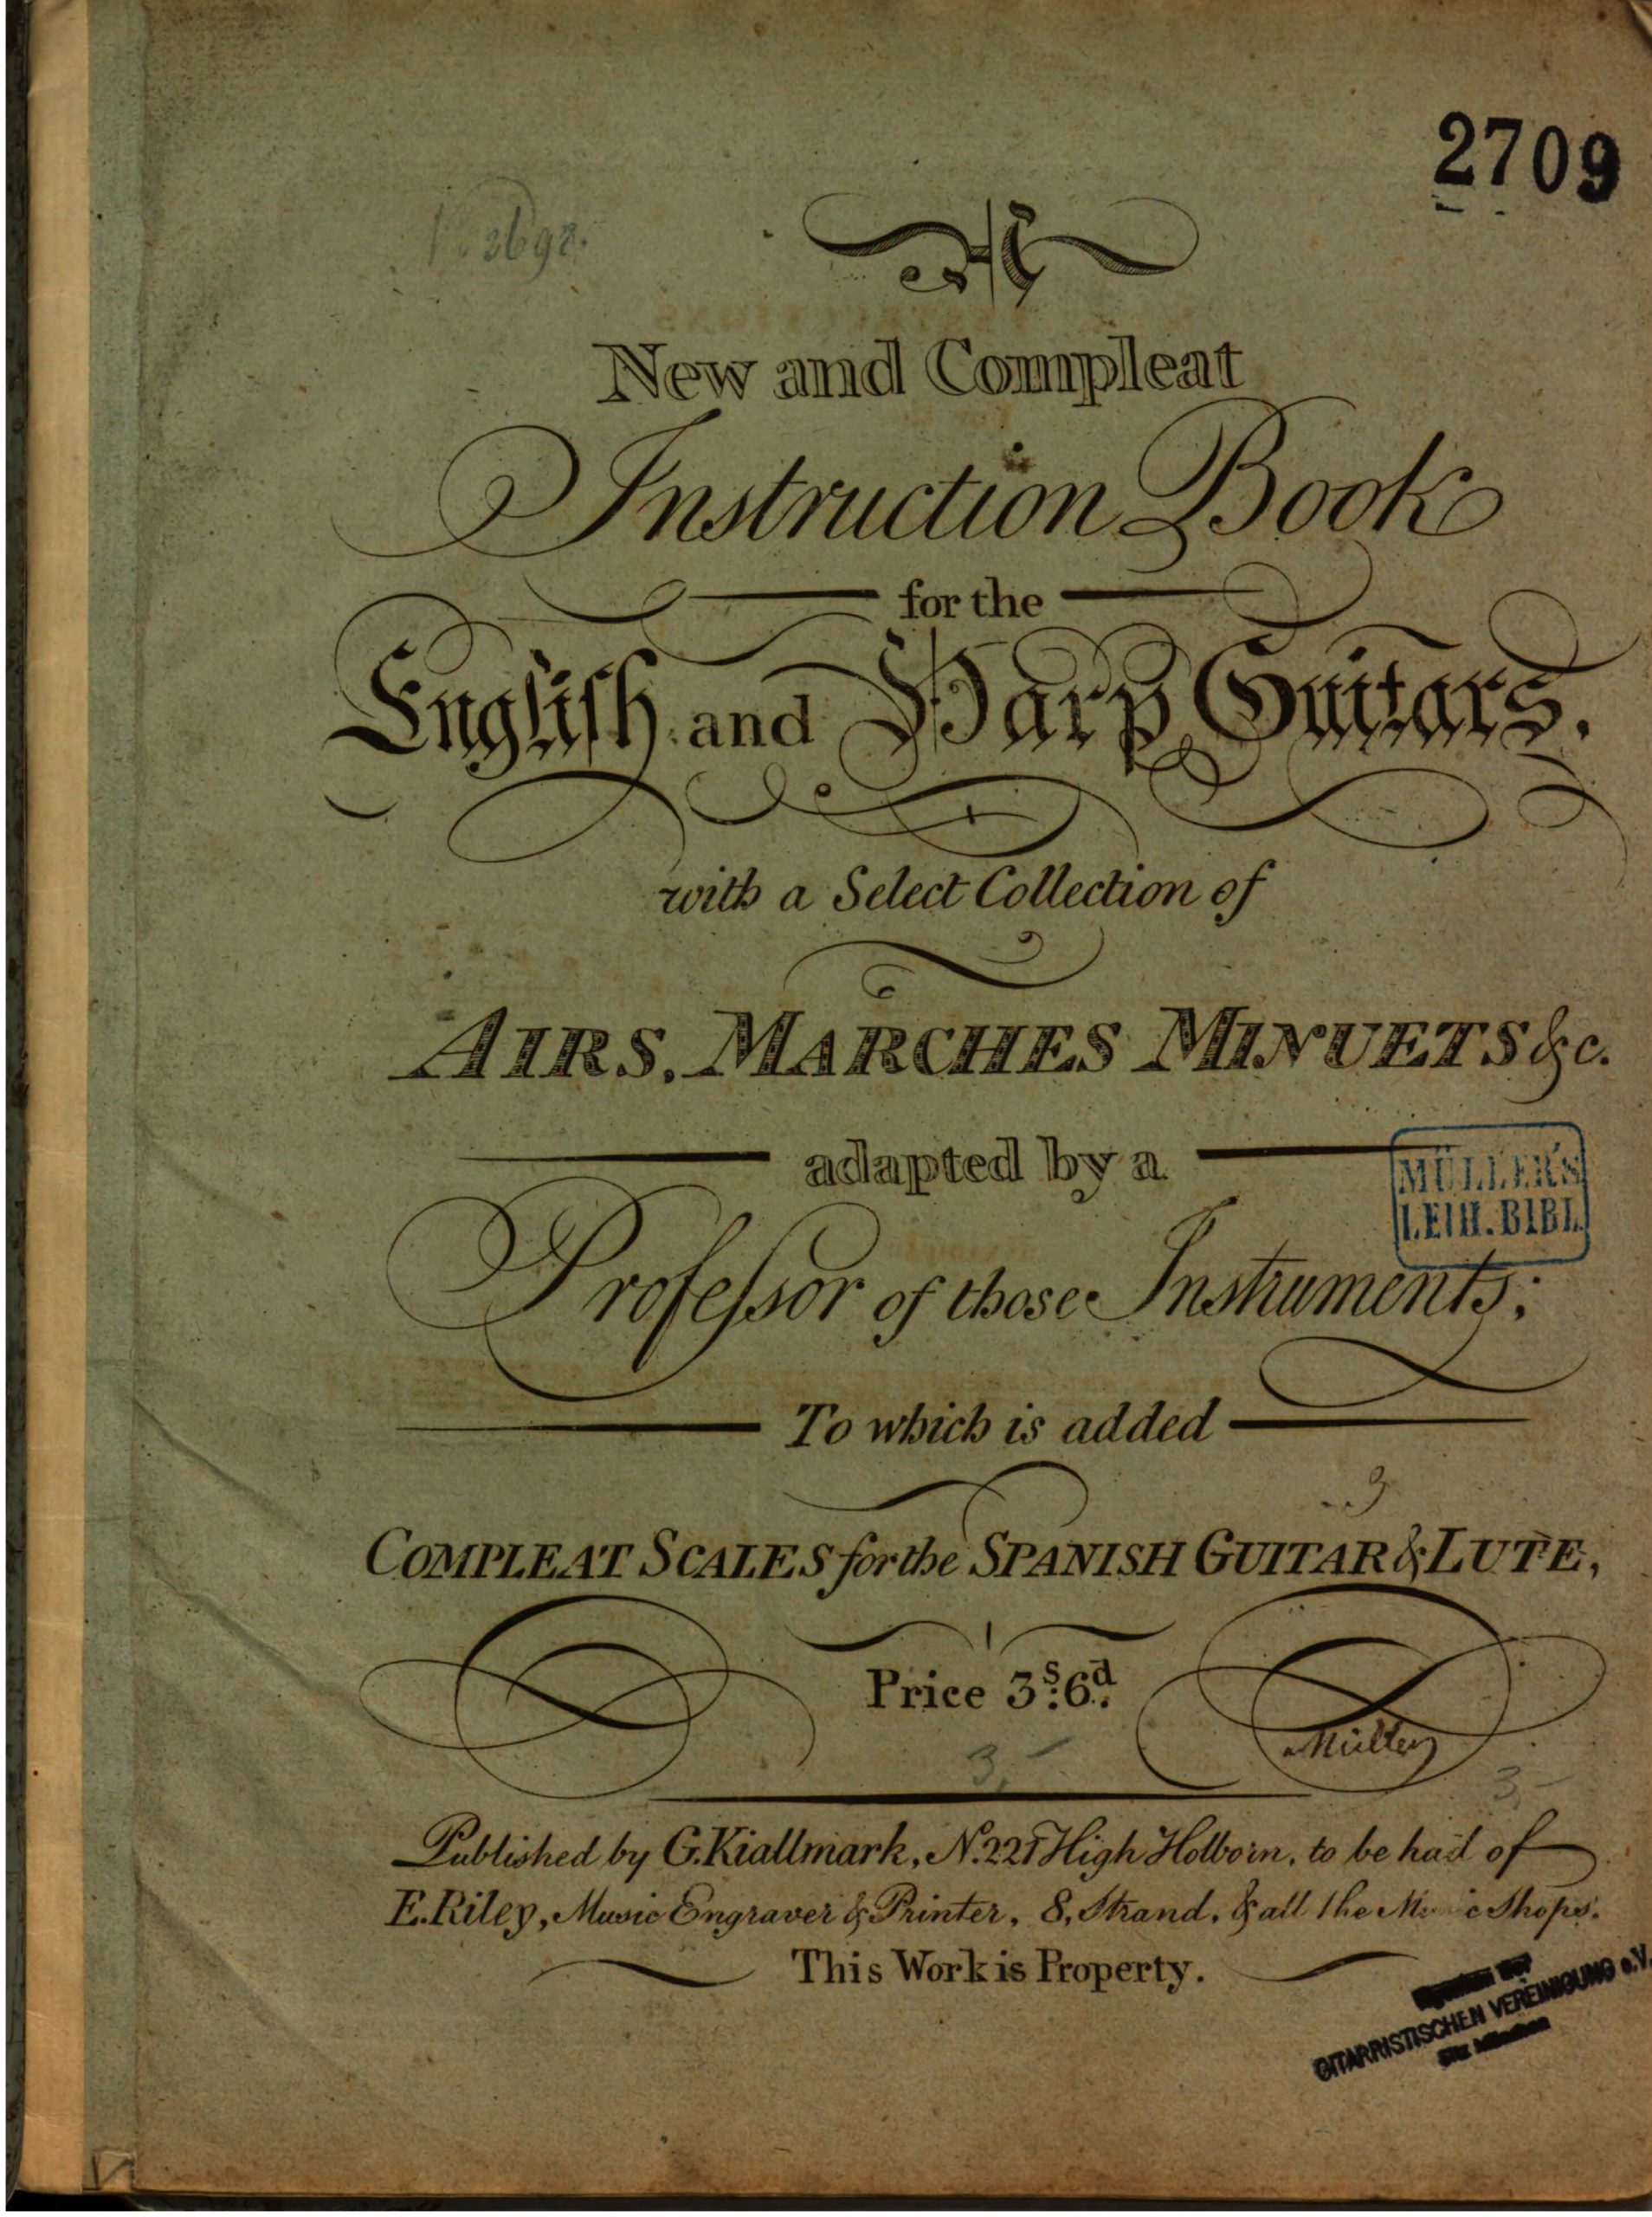 2709
A
New and Compleat
Instruction Book
for the
Engliſh and Harp Guitars.
with a Select Collection of
AIRS, MARCHES MINUETS &c.
adapted by a
MÜLLER'S
LEIH. BIBL.
Profeſsor of those Instruments;
To which is added
3
COMPLEAT SCALES for the SPANISH GUITAR & LUTE,
Price 3s. 6d.
Müller
3,–
3,–
Published by G. Kiallmark, No. 221 High Holborn, to be had of
E. Riley, Music Engraver & Printer, 8, Strand, & all the Music Shops.
This Work is Property.
GITARRISTISCHEN VEREINIGUNG e.V.